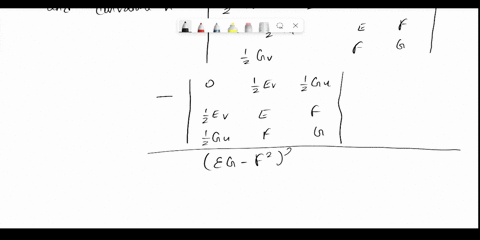 2 E F
½ Gv F G
0 ½ Ev ½ Gu
— ½ Ev E F
½ Gu F G
(EG - F²)²